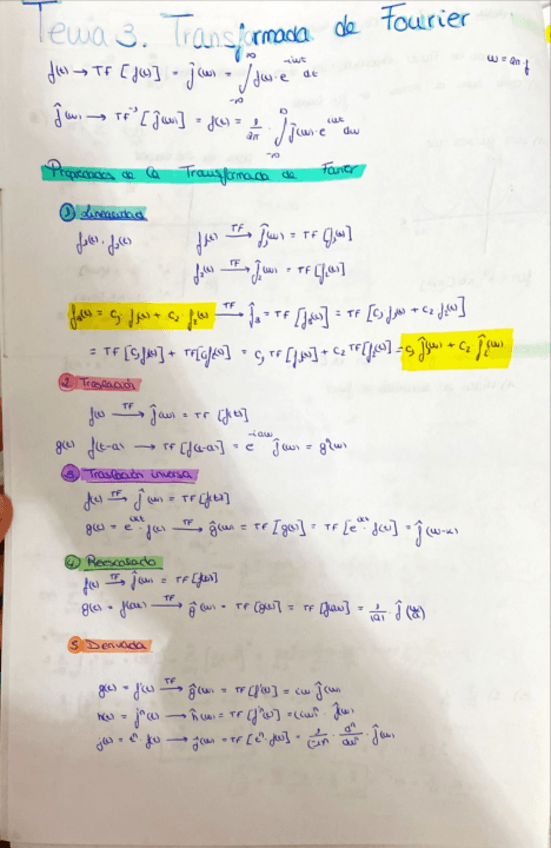 Tema 3. Transformada de Fourier
f(t) → TF [f(t)] = f̂(ω) = ∫_{-∞}^{∞} f(t) · e^{-iωt} dt    ω = 2π f
f̂(ω) → TF⁻¹ [f̂(ω)] = f(t) = 1/2π · ∫_{-∞}^{∞} f̂(ω) · e^{iωt} dω
Propiedades de la Transformada de Fourier
① Linealidad
f₁(t), f₂(t)    f₁(t) —TF→ f̂₁(ω) = TF [f₁(t)]
f₂(t) —TF→ f̂₂(ω) = TF [f₂(t)]
f₃(t) = C₁ · f₁(t) + C₂ · f₂(t) —TF→ f̂₃ = TF [f₃(t)] = TF [C₁ f₁(t) + C₂ f₂(t)]
= TF [C₁ f₁(t)] + TF [C₂ f₂(t)] = C₁ TF [f₁(t)] + C₂ TF [f₂(t)] = C₁ f̂₁(ω) + C₂ f̂₂(ω)
2. Traslación
f(t) —TF→ f̂(ω) = TF [f(t)]
g(t) f(t-a) → TF [f(t-a)] = e^{-iaω} f̂(ω) = ĝ(ω)
③ Traslación inversa
f(t) —TF→ f̂(ω) = TF [f(t)]
g(t) = e^{iαt} · f(t) —TF→ ĝ(ω) = TF [g(t)] = TF [e^{iαt} · f(t)] = f̂(ω-α)
④ Reescalado
f(t) —TF→ f̂(ω) = TF [f(t)]
g(t) = f(at) —TF→ ĝ(ω) = TF [g(t)] = TF [f(at)] = 1/|a| · f̂(ω/a)
5 Derivada
g(t) = f'(t) —TF→ ĝ(ω) = TF [f'(t)] = iω f̂(ω)
h(t) = fⁿ(t) → ĥ(ω) = TF [fⁿ(t)] = (iω)ⁿ · f̂(ω)
j(t) = tⁿ · f(t) → ĵ(ω) = TF [tⁿ · f(t)] = 1/(-i)ⁿ · dⁿ/dωⁿ · f̂(ω)